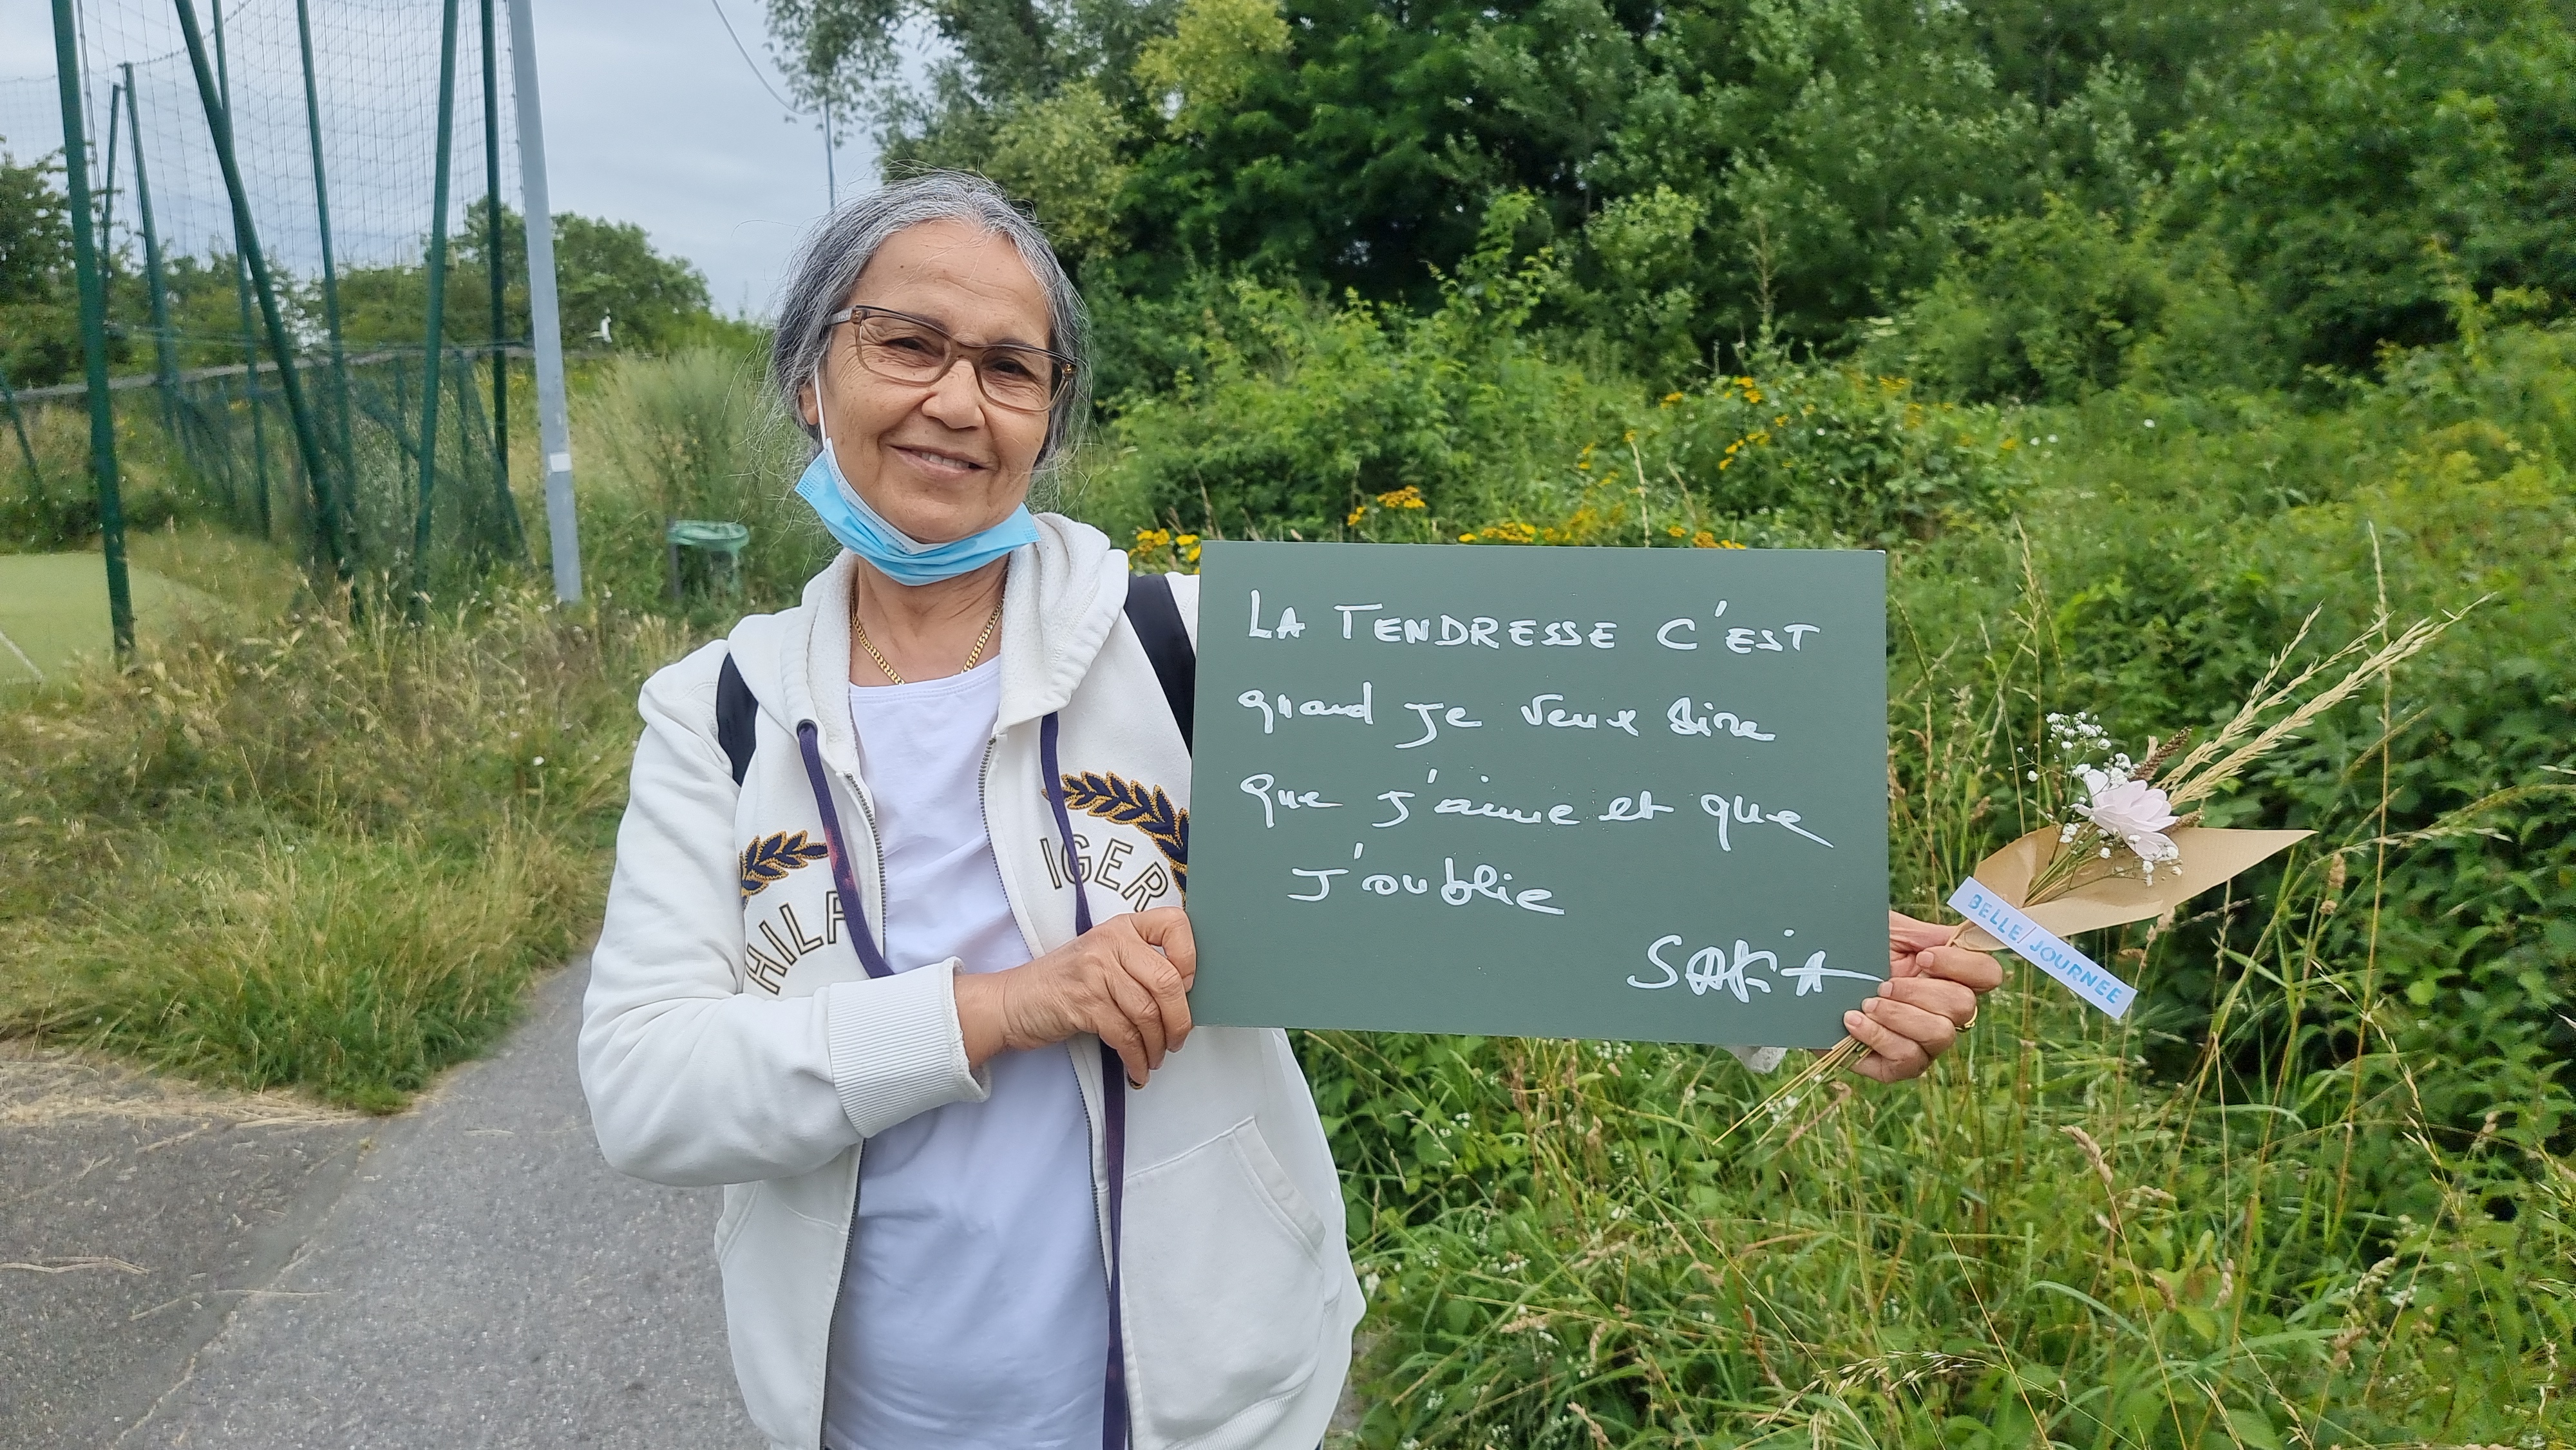 LA TENDRESSE C'EST
quand je veux dire
que j'aime et que
j'oublie
SAFIA
BELLE/JOURNEE
HILF
IGER